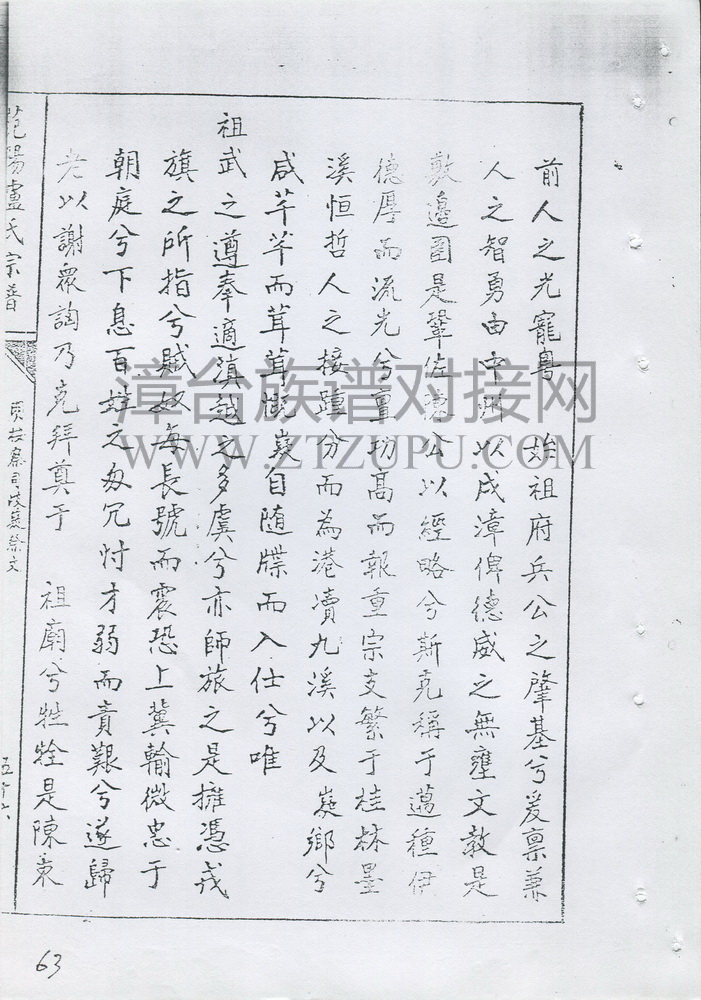 前人之光寵粵 始祖府兵公之肇基兮爰禀兼
人之智勇由中州以戍漳俾德威之無壅文教是
敷邊圉是鞏佐 公以經略兮斯克稱于邁種伊
德厚而流光兮亶功高而報重宗支繁于桂林墨
溪恒哲人之接踵分而為港瀆九溪以及 鄉兮
咸芊芊而茸茸 自随牒而入仕兮唯
祖武之遵奉適滇越之多虞兮亦師旅之是擁憑戎
旗之所指兮賊奴每長號而震恐上冀輸微忠于
朝庭兮下息百 之 冗忖才弱而責艱兮遂歸
老以謝衆詾乃克拜奠于 祖廟兮牲牷是陳
范陽盧氏宗普
祭文
五十六
63
漳台族谱对接网
WWW.ZTZUPU.COM